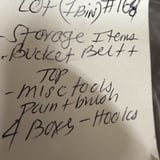 LOT (1 Bin) #168
- Storage Items
- Bucket Beltt
TOP
- misc tools
paintbrush
4 Boxes - Hooks